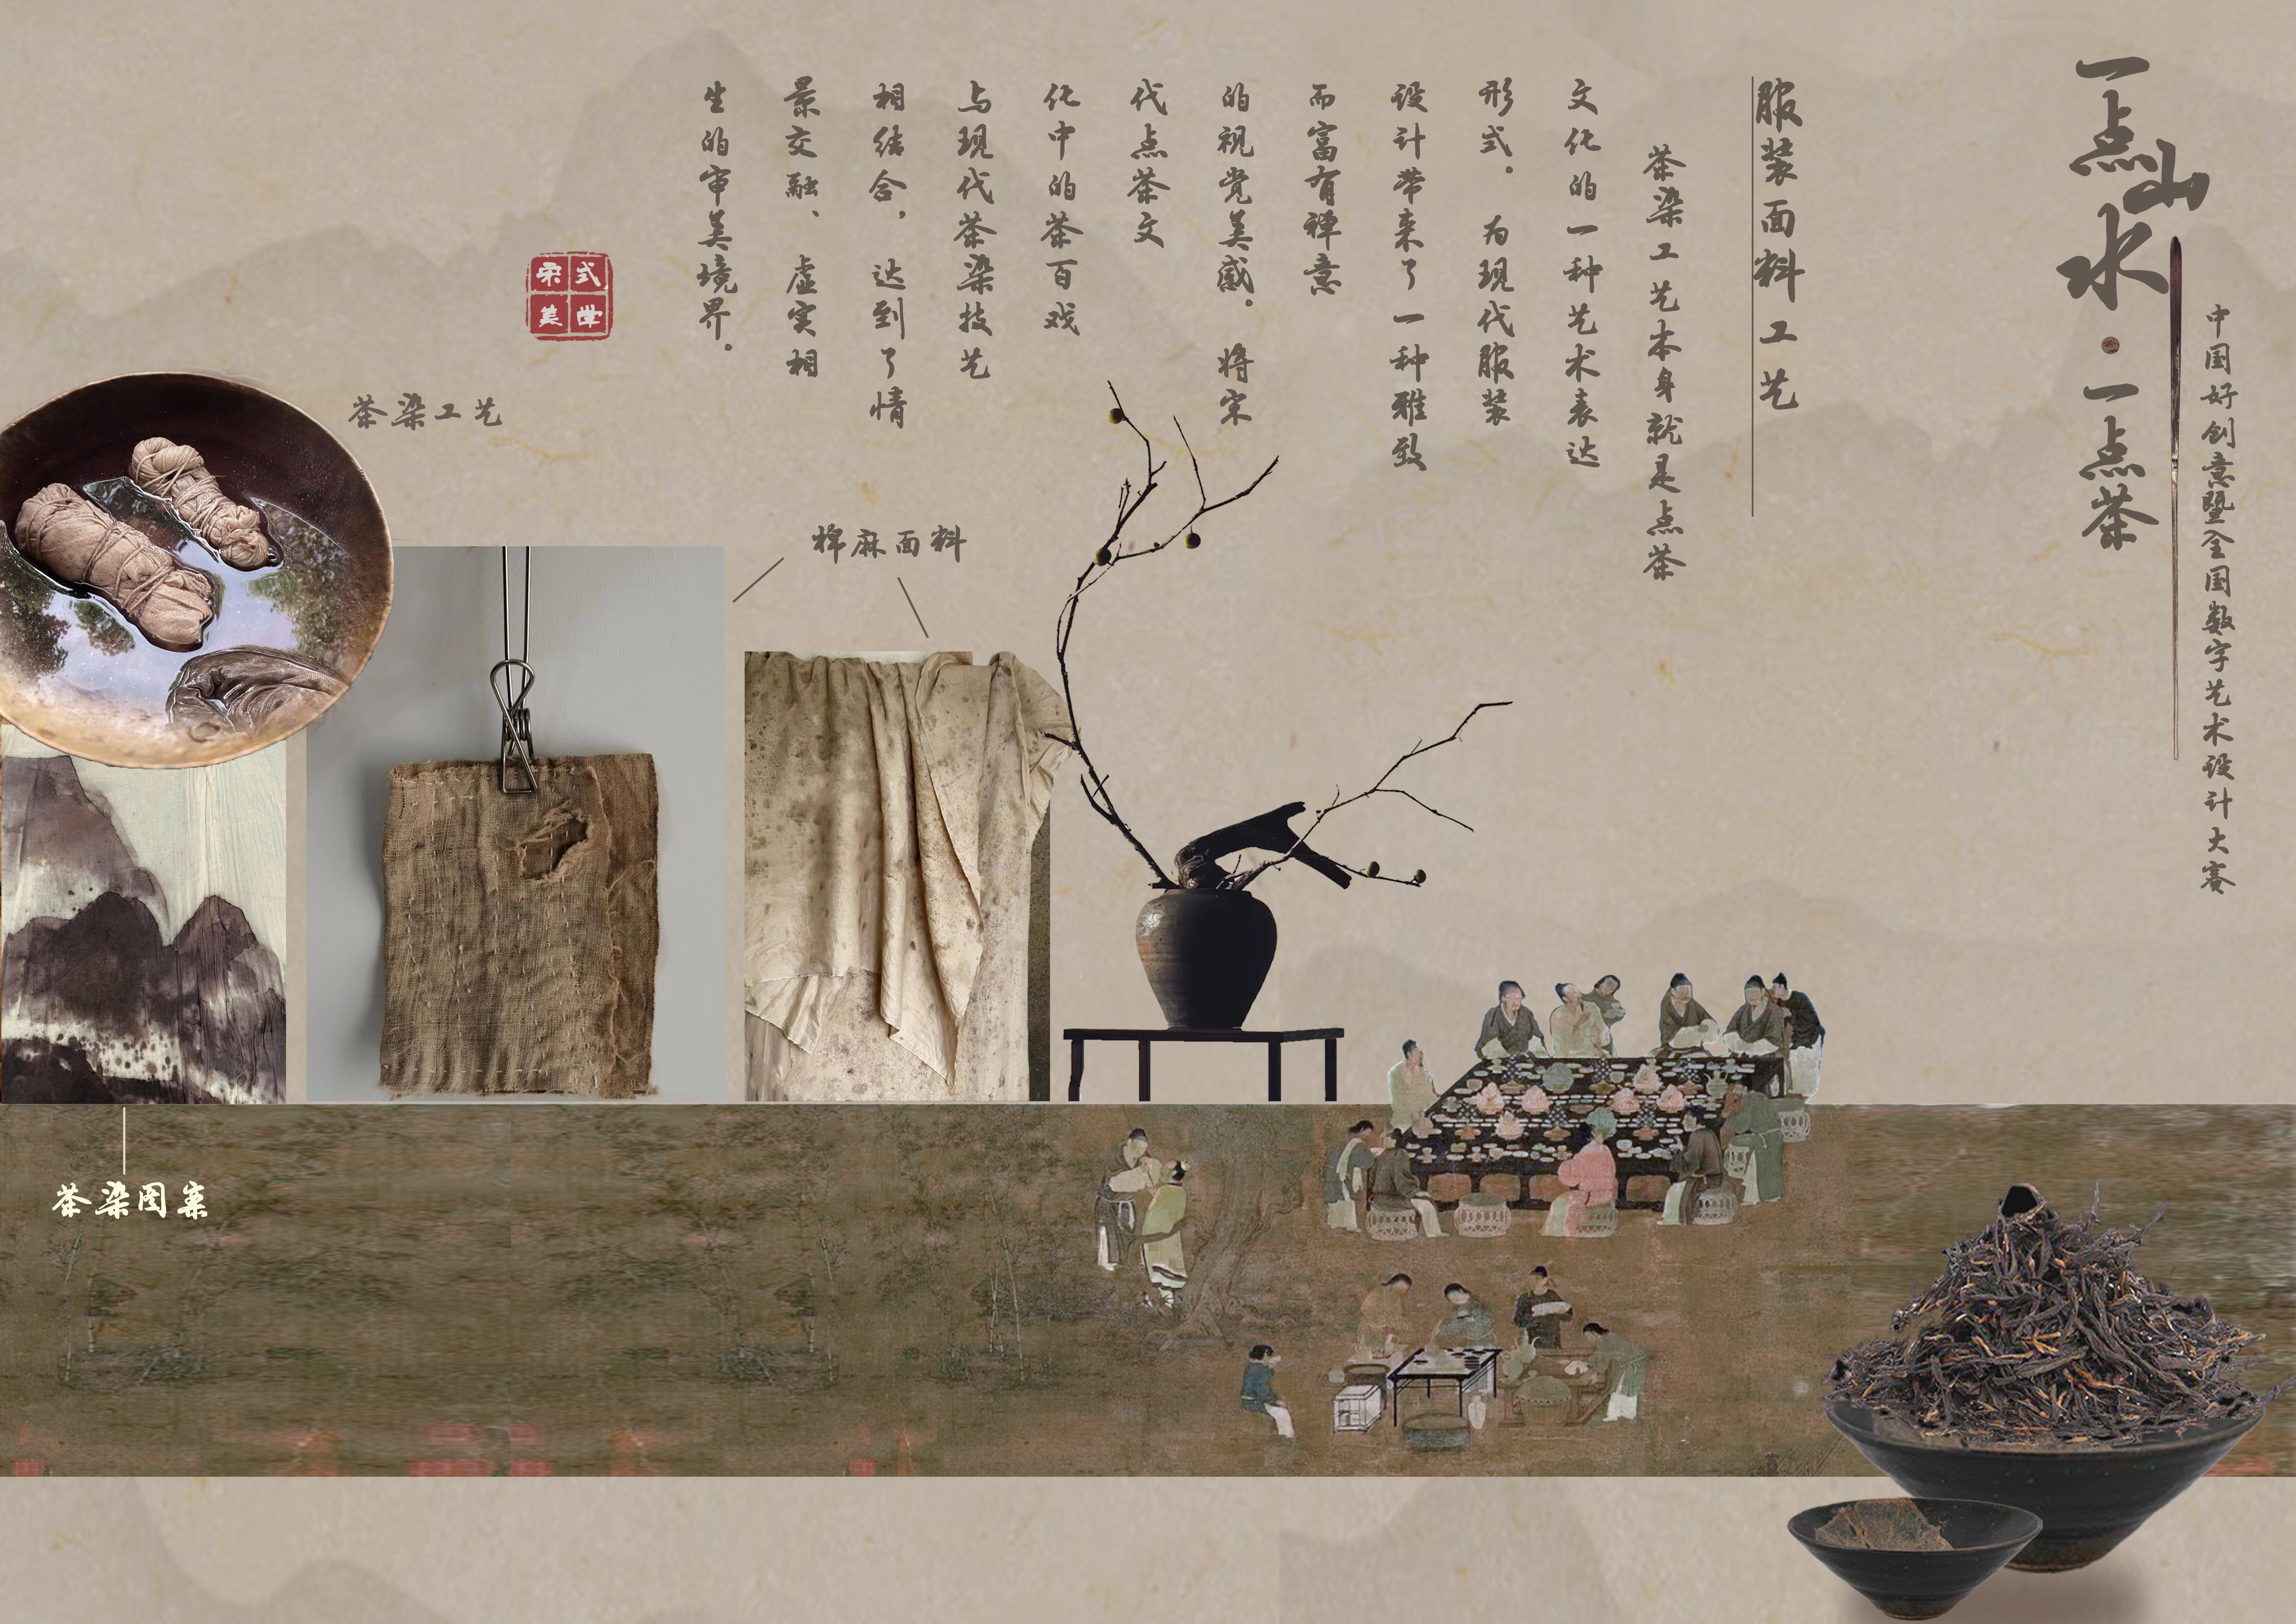 一点山水·一点茶
中国好创意暨全国数字艺术设计大赛
服装面料工艺
茶染工艺本身就是点茶
文化的一种艺术表达
形式。为现代服装
设计带来了一种雅致
而富有禅意
的视觉美感。将宋
代点茶文
化中的茶百戏
与现代茶染技艺
相结合，达到了情
景交融、虚实相
生的审美境界。
宋式
美学
茶染工艺
棉麻面料
茶染图案